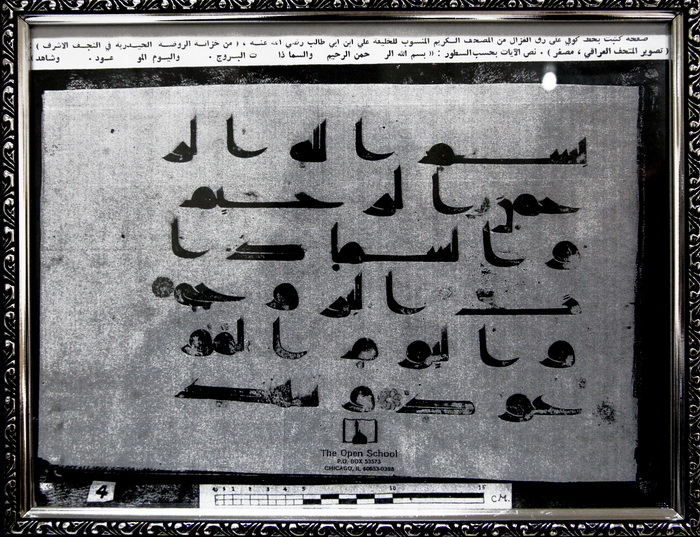 صفحه كتبت بخط كوفي على رق الغزال من المصحف الكريم المنسوب للخليفة علي ابن ابي طالب رضي الله عنه ، ( من خزانة الروضة الحيدرية في النجف الاشرف )
( تصوير المتحف العراقي ، مصغر ) . نص الآيات بحسب السطور : (( بسم الله الر حمن الرحيم والسما ذا ت البروج . واليوم المو عود . وشاهد ))
بسم الله الر
حمن الر حيم
و السما ذا
ت البروج
و اليوم المو
عود و شهد
The Open School
P.O. BOX 53573
CHICAGO, IL 60653-0398
4
5 10 15
CM.